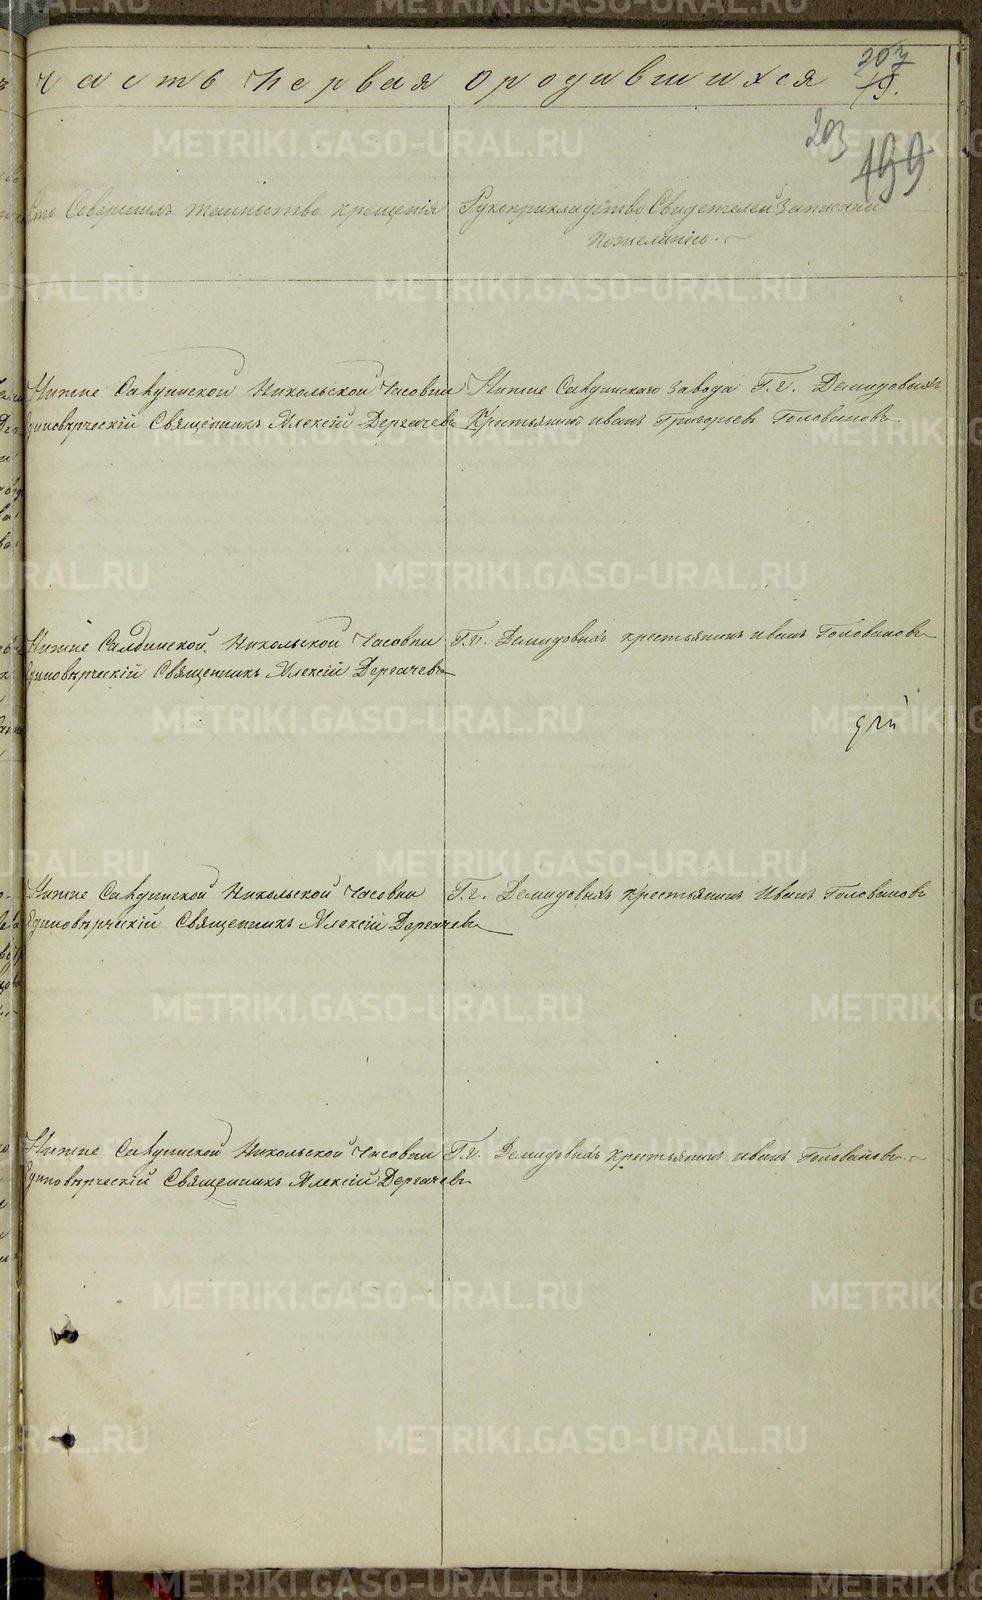 Часть первая о родившихся
203
199
Кто Совершилъ таинство крещенія
Рукоприкладство Свидетелей Записано
пожеланію.
Нижне Салдинской Никольской Часовни
Единоверческій Священникъ Алексій Дергачевъ
Нижне Салдинскаго Завода Г.г. Демидовыхъ
Крестьянинъ иванъ Григорьевъ Головановъ
Нижне Салдинской Никольской Часовни
Единоверческій Священникъ Алексій Дергачевъ
Г.г. Демидовыхъ крестьянинъ иванъ Головановъ
Нижне Салдинской Никольской Часовни
Единоверческій Священникъ Алексій Дергачевъ
Г.г. Демидовыхъ крестьянинъ Иванъ Головановъ
Нижне Салдинской Никольской Часовни
Единоверческій Священникъ Алексій Дергачевъ
Г.г. Демидовыхъ крестьянинъ иванъ Головановъ
METRIKI.GASO-URAL.RU